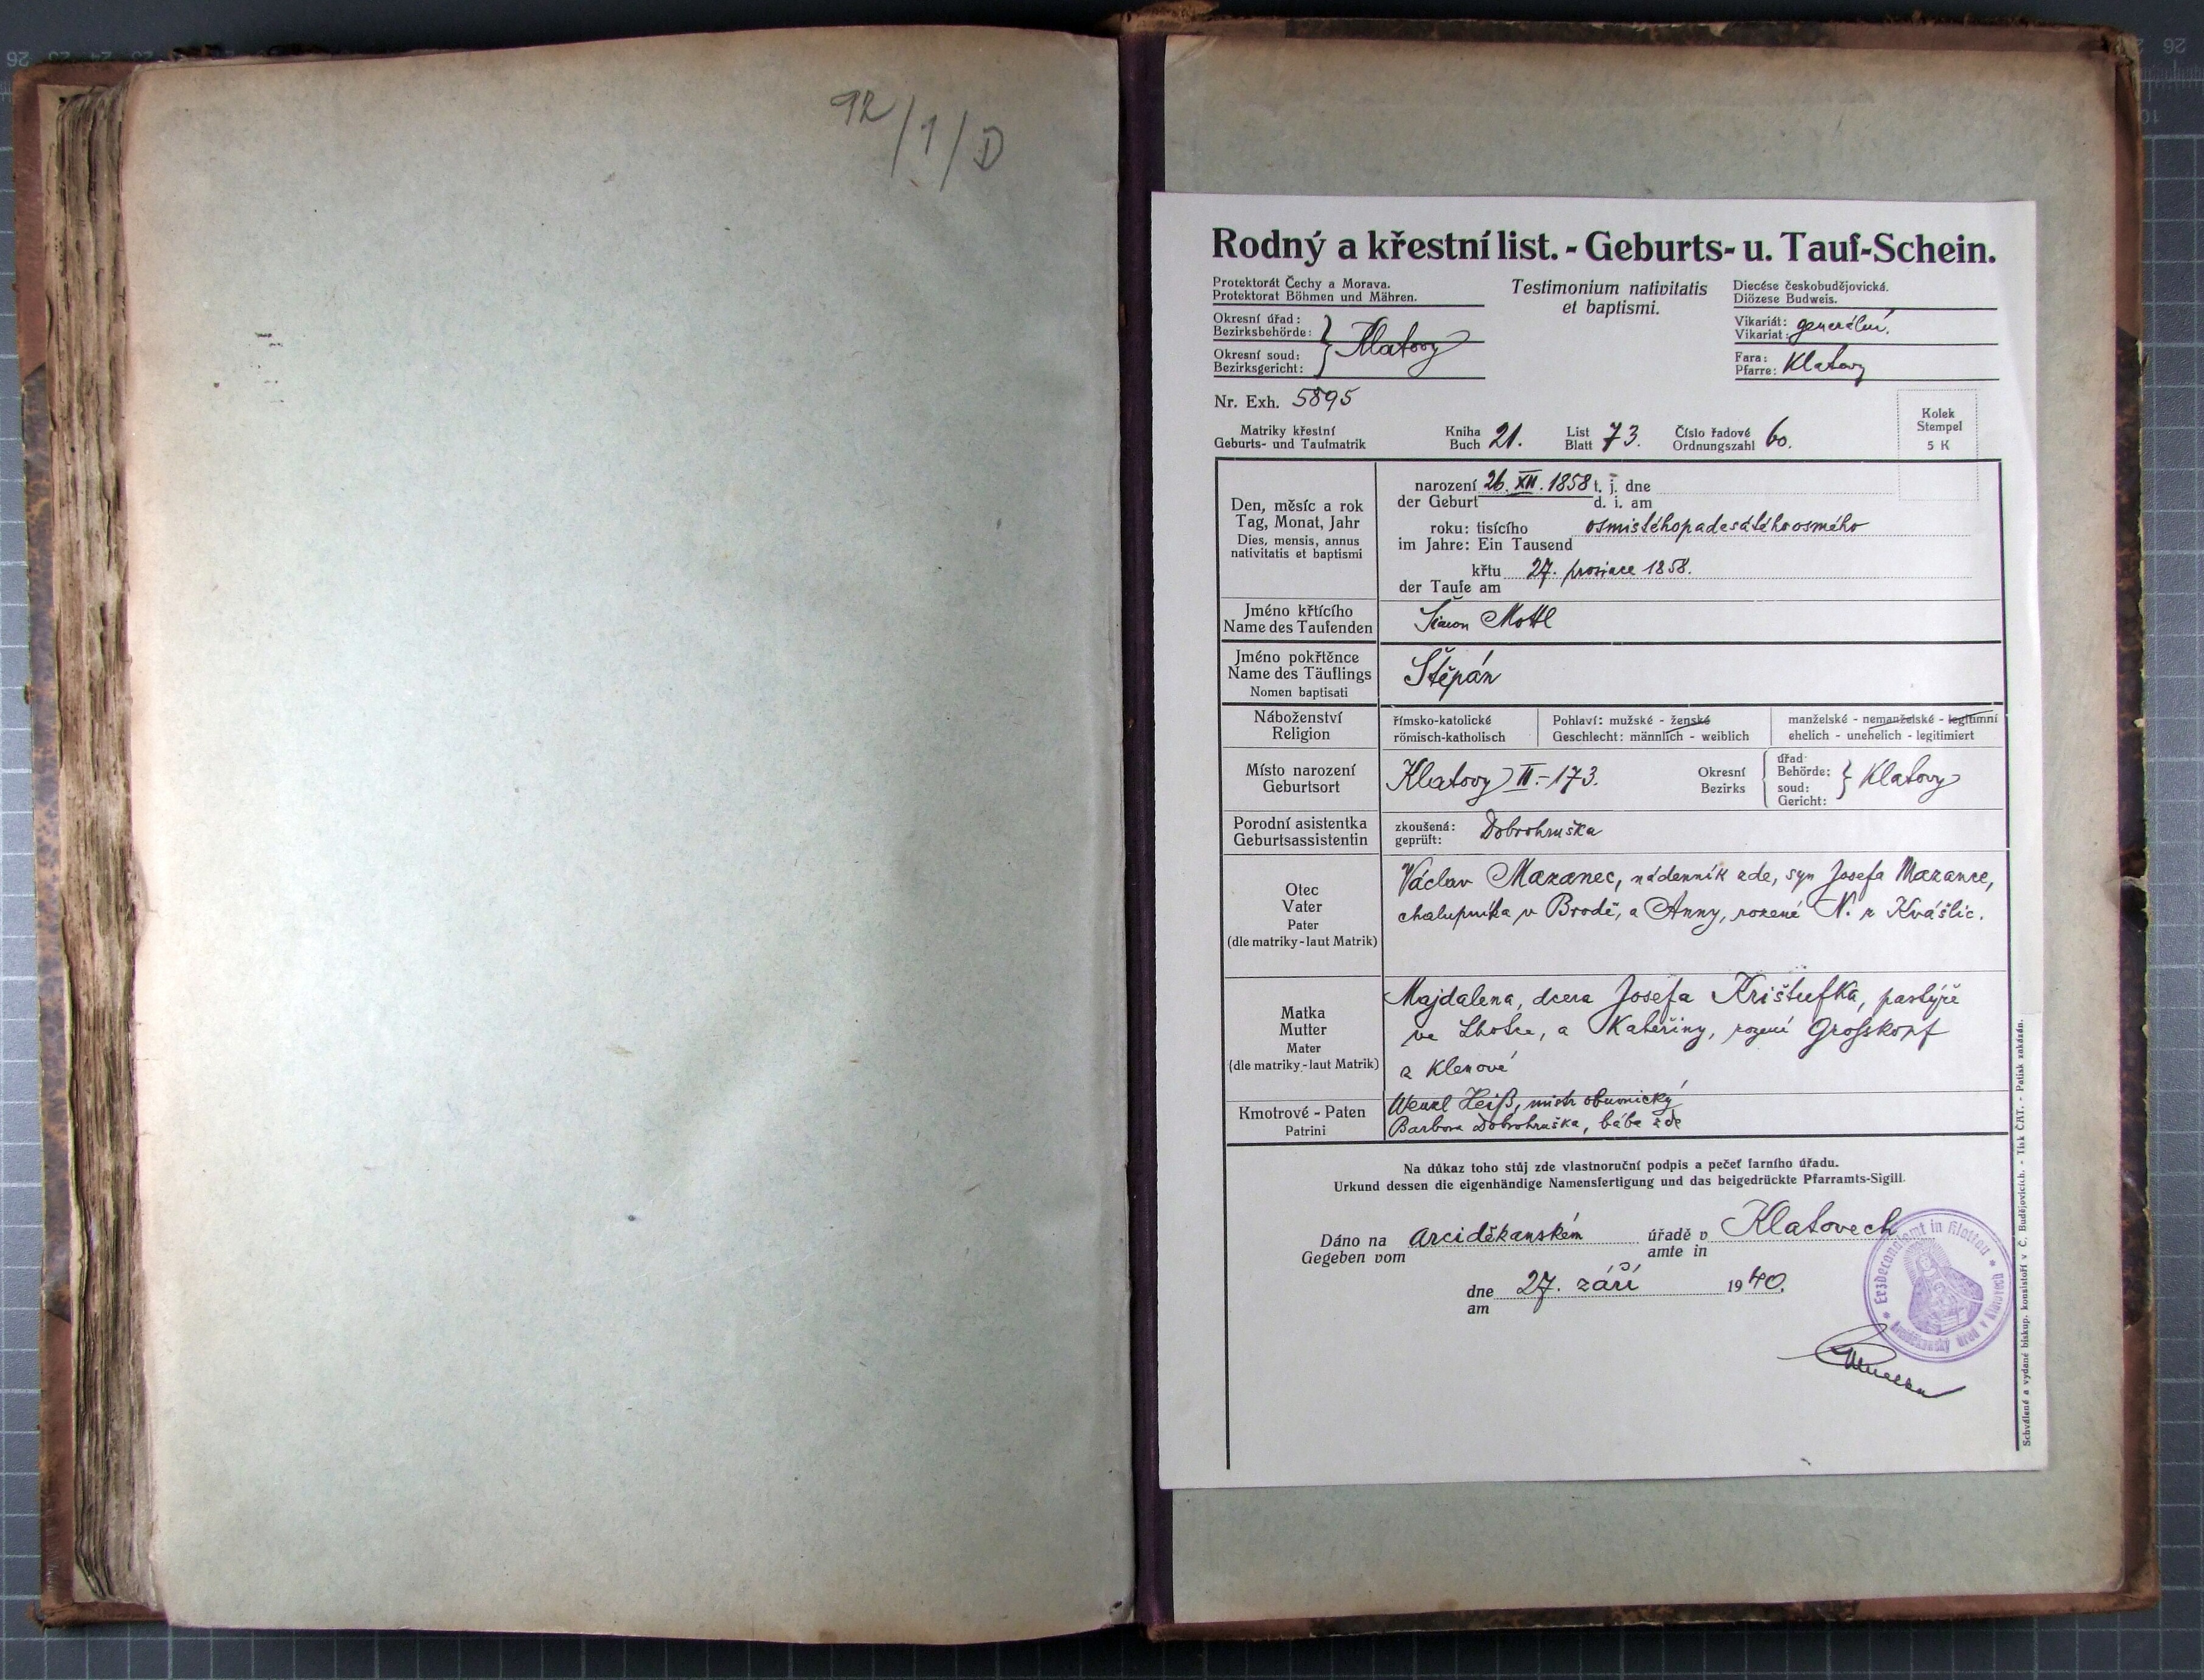 92/1/D
Rodný a křestní list. - Geburts- u. Tauf-Schein.
Protektorát Čechy a Morava.
Protektorat Böhmen und Mähren.
Testimonium nativitatis
et baptismi.
Diecése českobudějovická.
Diözese Budweis.
Okresní úřad:
Bezirksbehörde:
Okresní soud:
Bezirksgericht:
Klatovy
Vikariát:
Vikariat: generální.
Fara:
Pfarre: Klatovy
Nr. Exh. 5895
Kolek
Stempel
5 K
Matriky křestní
Geburts- und Taufmatrik
Kniha
Buch 21.
List
Blatt 73.
Číslo řadové
Ordnungszahl 60.
Den, měsíc a rok
Tag, Monat, Jahr
Dies, mensis, annus
nativitatis et baptismi
narození 26. XII. 1858 t. j. dne
der Geburt d. i. am
roku: tisícího osmistéhopadesátéhoosmého
im Jahre: Ein Tausend
křtu 27. prosince 1858.
der Taufe am
Jméno křtícího
Name des Taufenden
Šimon Mottl
Jméno pokřtěnce
Name des Täuflings
Nomen baptisati
Štěpán
Náboženství
Religion
římsko-katolické
römisch-katholisch
Pohlaví: mužské - ženské
Geschlecht: männlich - weiblich
manželské - nemanželské - legitimní
ehelich - unehelich - legitimiert
Místo narození
Geburtsort
Klatovy II.-173.
Okresní
Bezirks
úřad
Behörde:
soud:
Gericht:
Klatovy
Porodní asistentka
Geburtsassistentin
zkoušená: Dobrohruška
geprüft:
Otec
Vater
Pater
(dle matriky - laut Matrik)
Václav Mazanec, nádenník zde, syn Josefa Mazance,
chalupníka v Brodě, a Anny, rozené N. z Kvášlic.
Matka
Mutter
Mater
(dle matriky - laut Matrik)
Majdalena, dcera Josefa Krištufka, pastýře
ve Lhotce, a Kateřiny, rozené Grosskopf
z Klenové
Kmotrové - Paten
Patrini
Wenzl Heiß, mistr obuvnický
Barbora Dobrohruška, bába zde
Na důkaz toho stůj zde vlastnoruční podpis a pečeť farního úřadu.
Urkund dessen die eigenhändige Namensfertigung und das beigedrückte Pfarramts-Sigill.
Dáno na arciděkanském úřadě v Klatovech
Gegeben vom amte in
dne 27. září 1940.
am
Erzdecanalamt in Klattau
Arciděkanský úřad v Klatovech
Schválené a vydané biskup. konsistoří v Č. Budějovicích. - Tisk ČAT. - Patisk zakázán.